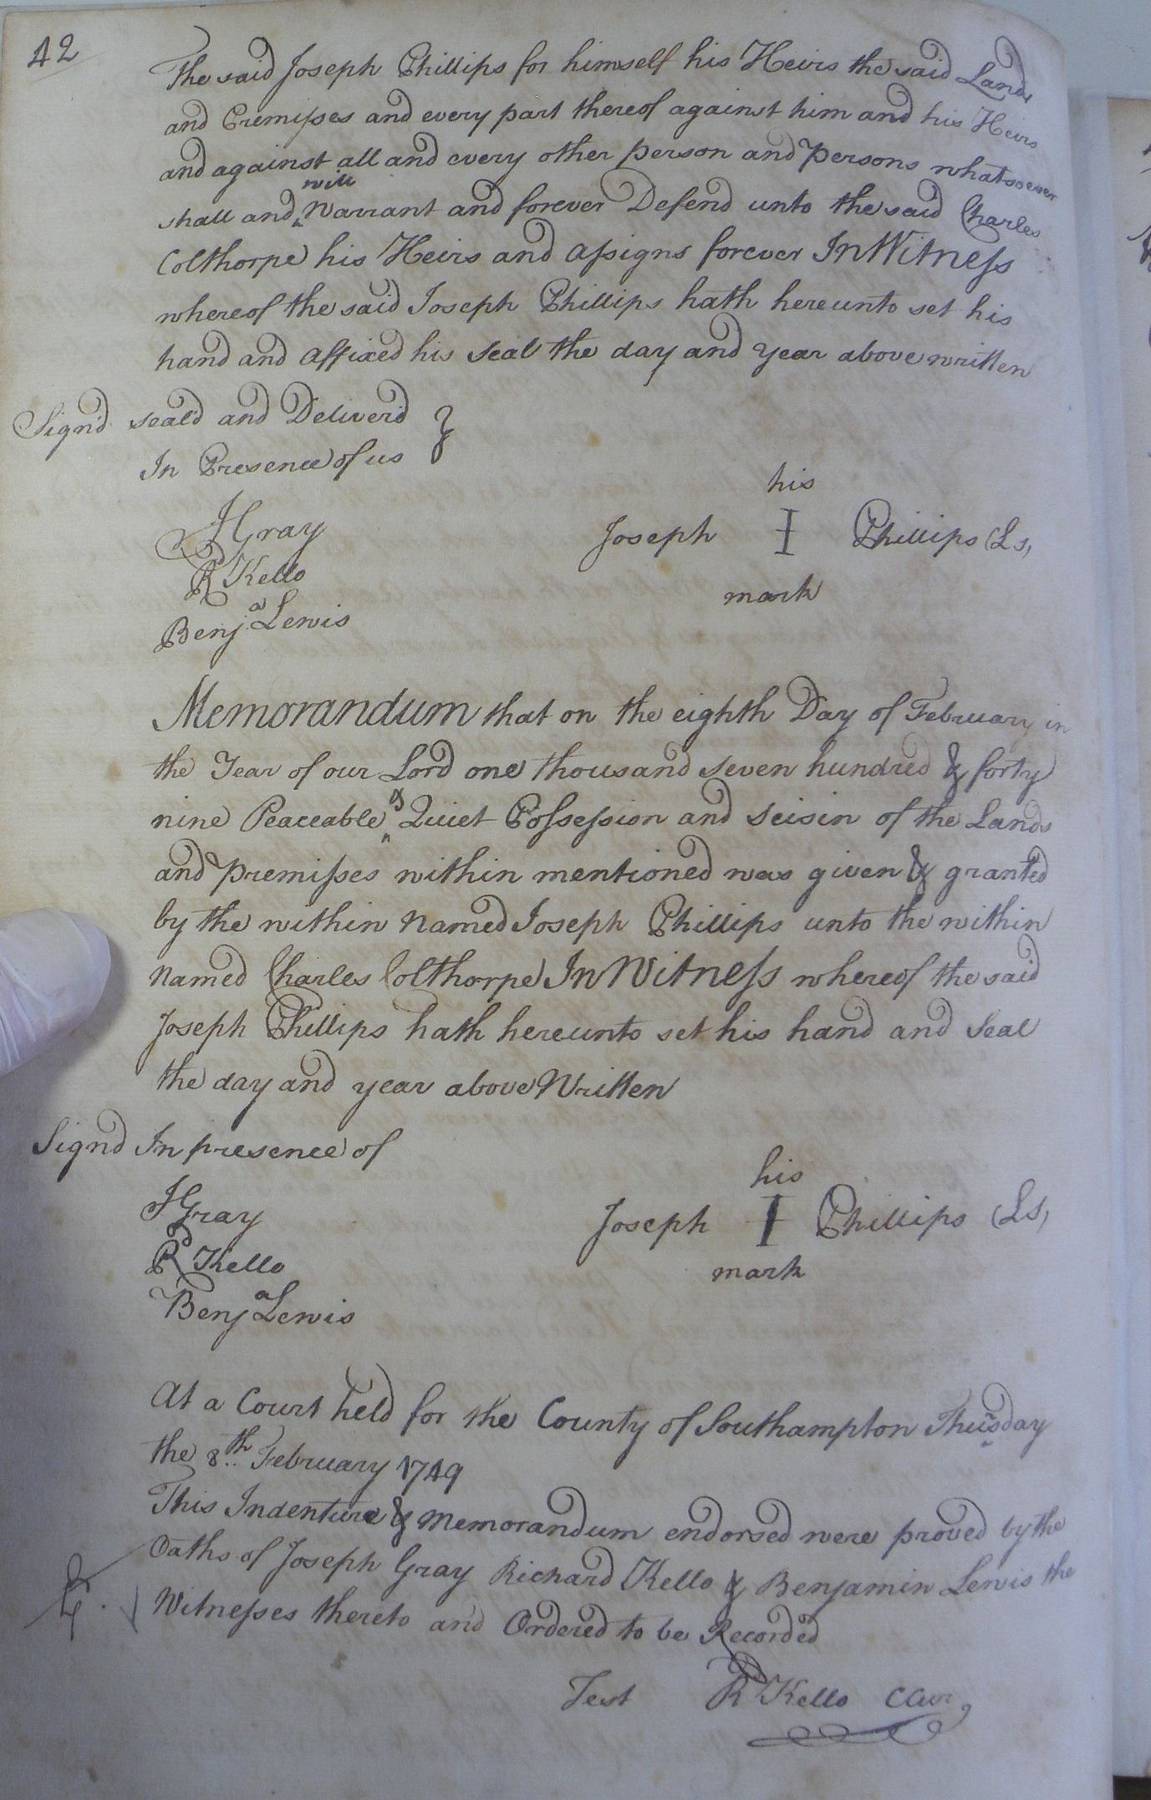 42
The said Joseph Phillips for himself his Heirs the said Lands
and Premisses and every part thereof against him and his Heirs
and against all and every other person and persons whatsoever
will
shall and ^ Warrant and forever Defend unto the said Charles
Colthorpe his Heirs and assigns forever In Witness
whereof the said Joseph Phillips hath hereunto set his
hand and affixed his Seal the day and year above written
Sign'd seal'd and Deliver'd }
In Presence of us
his
JGray Joseph I Phillips (Ls)
Rd Kello
mark
Benja Lewis
Memorandum that on the eighth Day of February in
the Year of our Lord one thousand seven hundred & forty
nine Peaceable ^& Quiet Possession and Seisin of the Lands
and premisses within mentioned was given & granted
by the within named Joseph Phillips unto the within
named Charles Colthorpe In Witness whereof the said
Joseph Phillips hath hereunto set his hand and Seal
the day and year above Written
Signd In presence of
his
JGray Joseph I Phillips (Ls)
Rd Kello mark
Benja Lewis
At a Court held for the County of Southampton Thursday
the 8th February 1749
This Indenture & Memorandum endorsed were proved by the
Oaths of Joseph Gray Richard Kello & Benjamin Lewis the
Witnesses thereto and Ordered to be Recorded
Test R Kello CCur